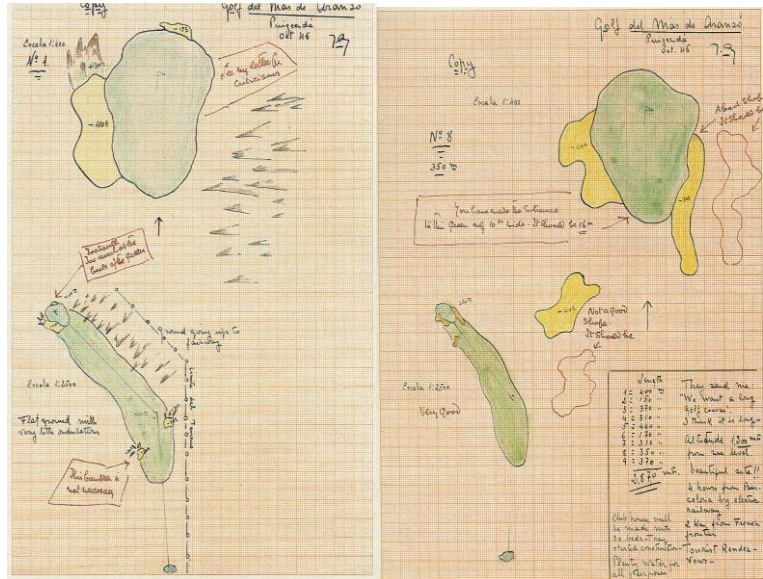 Copy
Golf del Mas de Aranzó
Puigcerdà
Oct. 46
Escala 1:400
Nº 1
See my letter for
criticisms
Too much at the
back of the green
Ground going up to
fairway
Escala 1:2500
Flat ground with
very little undulation
This bunker is
not necessary
Golf del Mas de Aranzó
Puigcerdà
Oct. 46
Copy
Escala 1:400
Nº 8
350 m
A bad shape
It should be
You have made the entrance
to this green only 10 m wide - It should be 16 m
Not a good
shape
It should be
Escala 1:2500
Very Good
Length
1 = 400 m
2 = 150 "
3 = 370 "
4 = 310 "
5 = 440 "
6 = 170 "
7 = 310 "
8 = 350 "
9 = 370 "
2,870 mts.
They said me:
"We want a long
golf course".
I think it is long -
Altitude 1,300 mts
from sea level.
beautiful site!!
4 hours from Bar-
celona by electric
railway
2 km from French
frontier
Tourist Rendez-
Vous -
Club house will
be made with
30 beds - They
started construction -
Plenty water for
all purposes